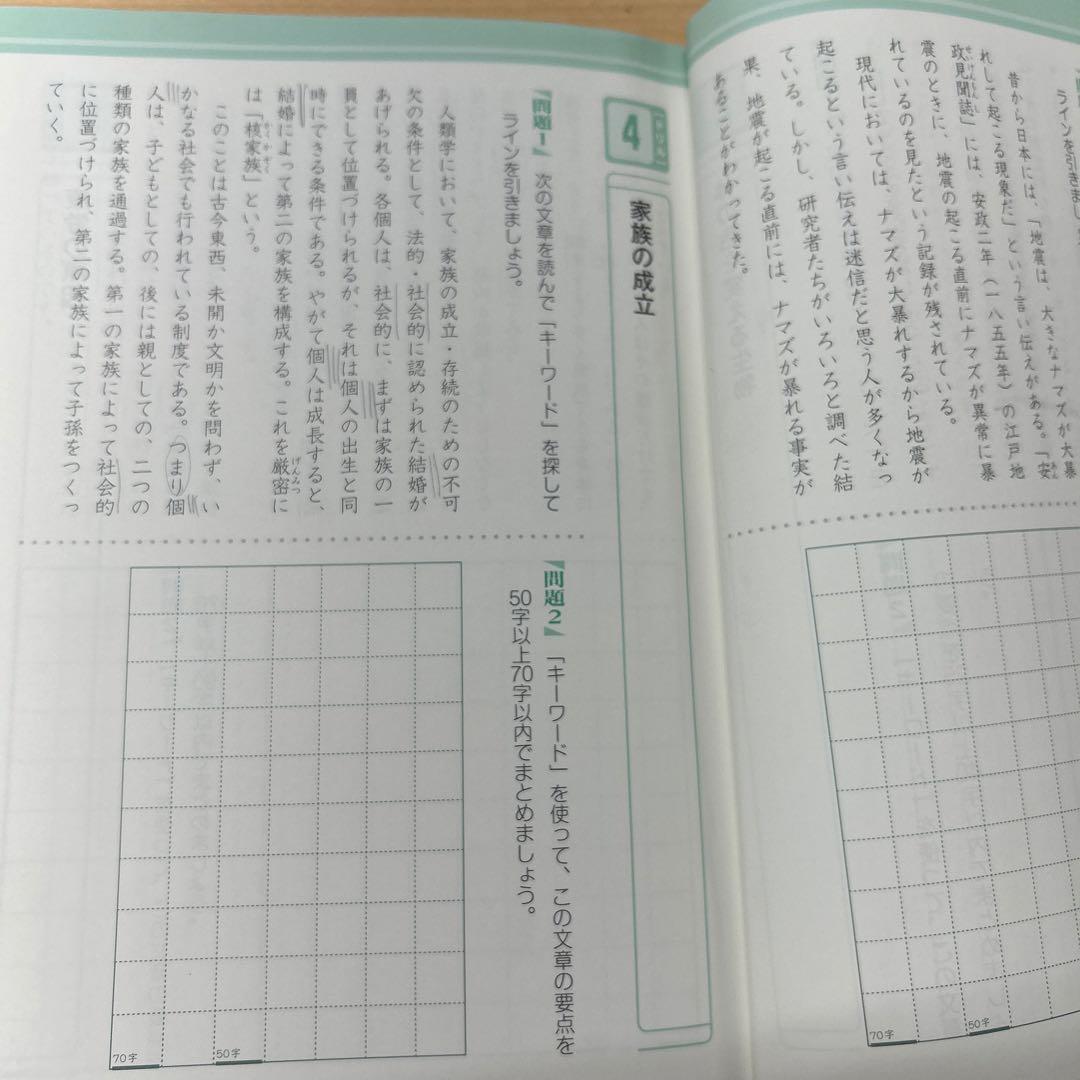 ラインを引きまし
昔から日本には、「地震は、大きなナマズが大暴
れして起こる現象だ」という言い伝えがある。「安
政見聞誌」には、安政二年(一八五五年)の江戸地
震のときに、地震の起こる直前にナマズが異常に暴
れているのを見たという記録が残されている。
現代においては、ナマズが大暴れするから地震が
起こるという言い伝えは迷信だと思う人が多くなっ
ている。しかし、研究者たちがいろいろと調べた結
果、地震が起こる直前には、ナマズが暴れる事実が
あることがわかってきた。
70字
50字
ドリル
4
家族の成立
問題1 次の文章を読んで「キーワード」を探して
ラインを引きましょう。
人類学において、家族の成立・存続のための不可
欠の条件として、法的・社会的に認められた結婚が
あげられる。各個人は、社会的に、まずは家族の一
員として位置づけられるが、それは個人の出生と同
時にできる条件である。やがて個人は成長すると、
結婚によって第二の家族を構成する。これを厳密に
げんみつ
は「核家族」という。
かくかぞく
このことは古今東西、未開か文明かを問わず、い
かなる社会でも行われている制度である。つまり個
人は、子どもとしての、後には親としての、二つの
種類の家族を通過する。第一の家族によって社会的
に位置づけられ、第二の家族によって子孫をつくっ
ていく。
問題2 「キーワード」を使って、この文章の要点を
50字以上70字以内でまとめましょう。
50字
70字